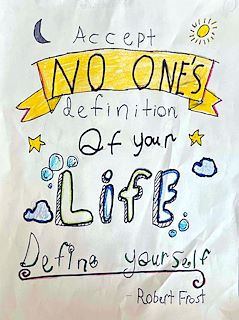 Accept
NO ONE'S
definition
Of your
LifE
Define yourself
- Robert Frost